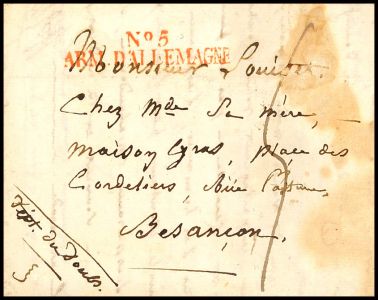 No 5
ARM. D'ALLEMAGNE
Monsieur
Chez Mde Sa mère,
maison Gras, Place des
Cordeliers,
Besançon.
Dépt. du Doubs.